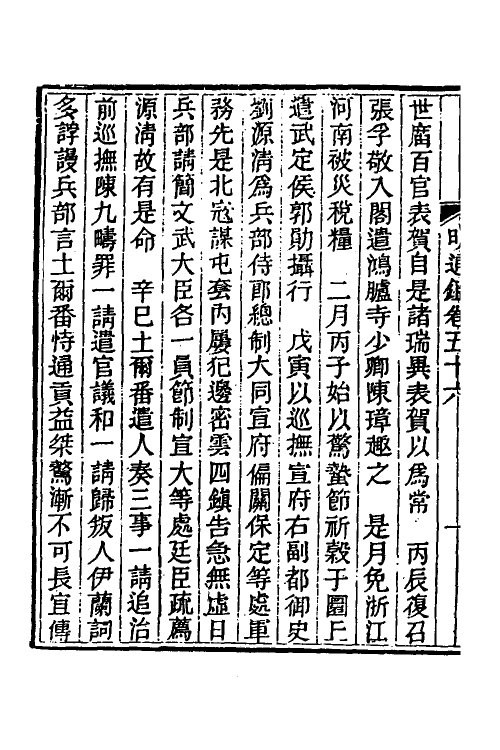 明通鑑卷五十六
世廟百官表賀自是諸瑞異表賀以爲常　丙辰復召
張孚敬入閣遣鴻臚寺少卿陳璋趣之　是月免浙江
河南被災稅糧　二月丙子始以驚蟄節祈穀于圜丘
遣武定侯郭勛攝行　戊寅以巡撫宣府右副都御史
劉源淸爲兵部侍郎總制大同宣府偏關保定等處軍
務先是北寇謀屯套內屢犯邊密雲四鎮告急無虛日
兵部請簡文武大臣各一員節制宣大等處廷臣疏薦
源淸故有是命　辛巳土爾番遣人奏三事一請追治
前巡撫陳九疇罪一請遣官議和一請歸叛人伊蘭詞
多誖謾兵部言土爾番恃通貢益桀驁漸不可長宜傳